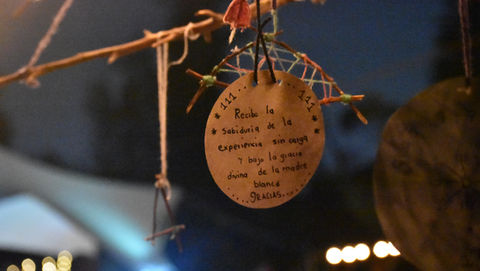 111... ...111
Recibo la
sabiduria de la
experiencia sin carga
y bajo la gracia
divina de la madre
blanca
GRACIAS...